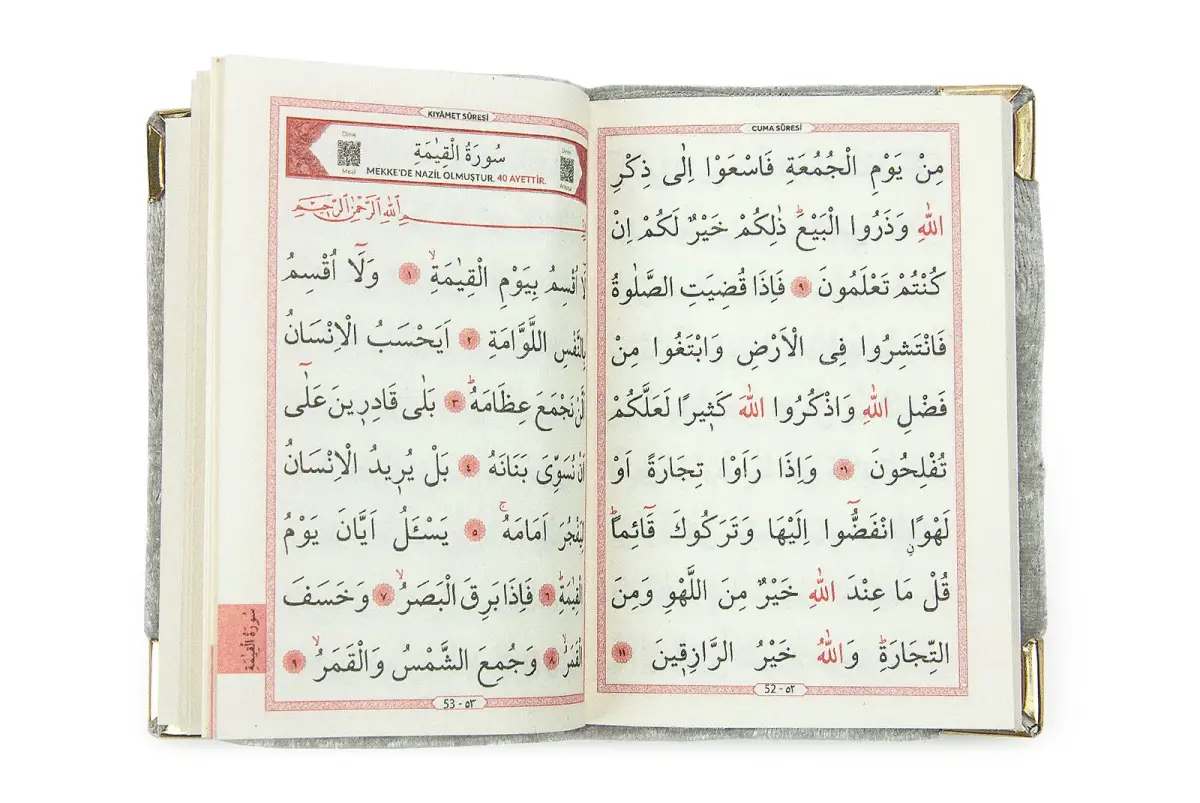 CUMA SÛRESİ
مِنْ يَوْمِ الْجُمُعَةِ فَاسْعَوْا اِلٰى ذِكْرِ
اللّٰهِ وَذَرُوا الْبَيْعَۜ ذٰلِكُمْ خَيْرٌ لَكُمْ اِنْ
كُنْتُمْ تَعْلَمُونَ ٩ فَاِذَا قُضِيَتِ الصَّلٰوةُ
فَانْتَشِرُوا فِى الْاَرْضِ وَابْتَغُوا مِنْ
فَضْلِ اللّٰهِ وَاذْكُرُوا اللّٰهَ كَثٖيرًا لَعَلَّكُمْ
تُفْلِحُونَ ١٠ وَاِذَا رَاَوْا تِجَارَةً اَوْ
لَهْوًاۨ انْفَضُّٓوا اِلَيْهَا وَتَرَكُوكَ قَٓائِمًاۜ
قُلْ مَا عِنْدَ اللّٰهِ خَيْرٌ مِنَ اللَّهْوِ وَمِنَ
التِّجَارَةِۜ وَاللّٰهُ خَيْرُ الرَّازِقٖينَ ١١
52 - ٥٢
KIYÂMET SÛRESİ
Dinle
Meal
سُورَةُ الْقِيٰمَةِ
MEKKE'DE NAZİL OLMUŞTUR. 40 AYETTİR.
بِسْمِ اللّٰهِ الرَّحْمٰنِ الرَّحٖيمِ
لَٓا اُقْسِمُ بِيَوْمِ الْقِيٰمَةِۙ ١ وَلَٓا اُقْسِمُ
بِالنَّفْسِ اللَّوَّامَةِ ٢ اَيَحْسَبُ الْاِنْسَانُ
اَلَّنْ نَجْمَعَ عِظَامَهُۜ ٣ بَلٰى قَادِرٖينَ عَلٰٓى
اَنْ نُسَوِّىَ بَنَانَهُ ٤ بَلْ يُرٖيدُ الْاِنْسَانُ
لِيَفْجُرَ اَمَامَهُۚ ٥ يَسْـَٔلُ اَيَّانَ يَوْمُ
الْقِيٰمَةِۜ ٦ فَاِذَا بَرِقَ الْبَصَرُۙ ٧ وَخَسَفَ
الْقَمَرُۙ ٨ وَجُمِعَ الشَّمْسُ وَالْقَمَرُۙ ٩
53 - ٥٣
سُورَةُ الْقِيٰمَة